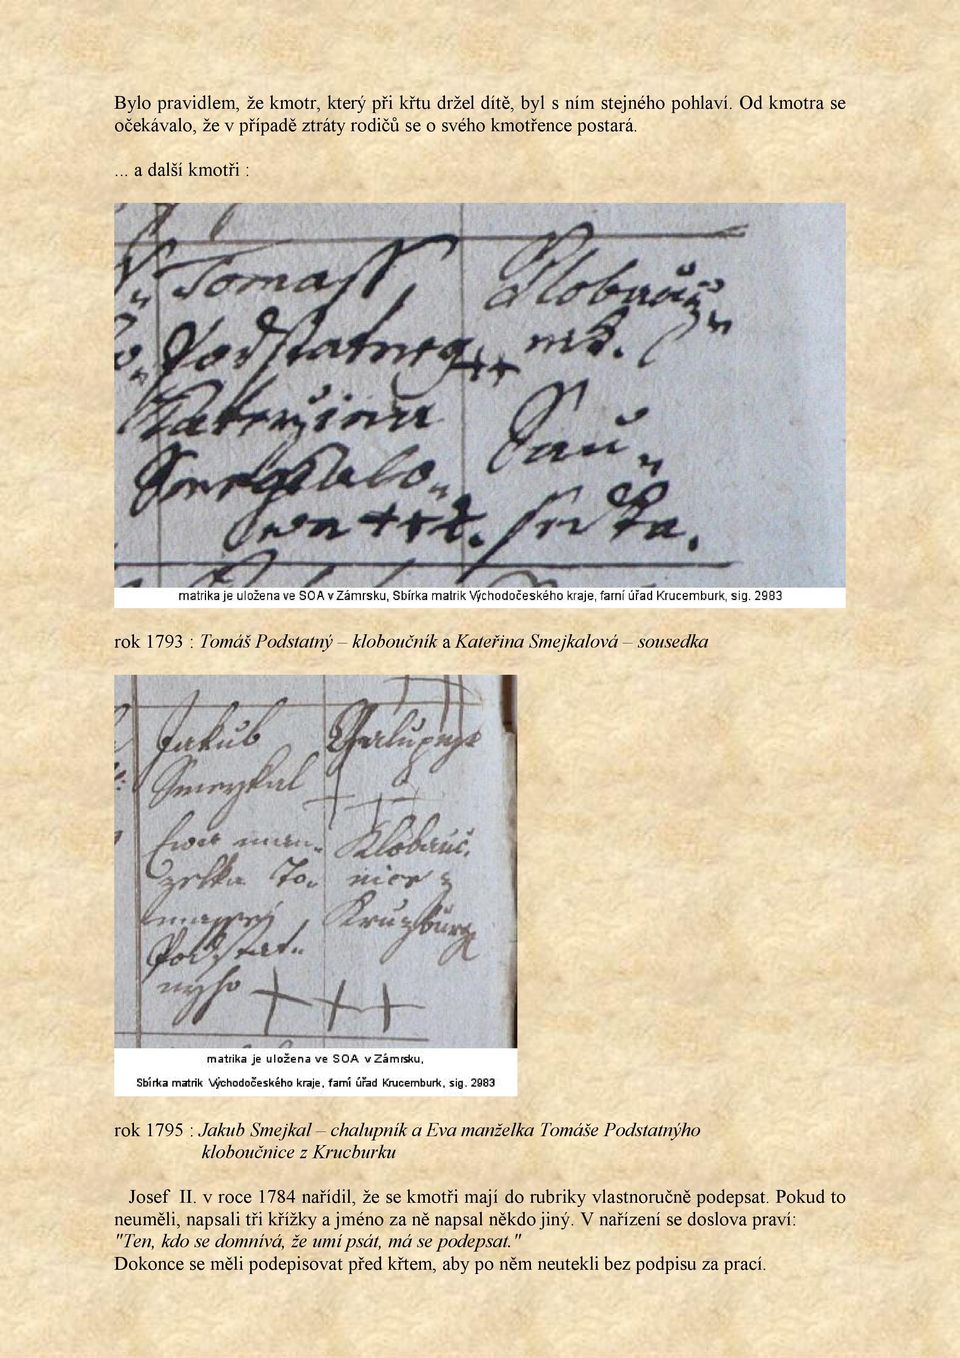 Bylo pravidlem, že kmotr, který při křtu držel dítě, byl s ním stejného pohlaví. Od kmotra se
očekávalo, že v případě ztráty rodičů se o svého kmotřence postará.
... a další kmotři :
Tomass Klobauč„
Podstatney +++ nik.
Katerzina Sau„
Smeykalo„
wa +++. sedka.
matrika je uložena ve SOA v Zámrsku, Sbírka matrik Východočeského kraje, farní úřad Krucemburk, sig. 2983
rok 1793 : Tomáš Podstatný – kloboučník a Kateřina Smejkalová – sousedka
Jakub Chalupnyk
Smeykal +++
Ewa man„ Klobauč„
zelka To„ nice z
massey Kruzburg
Podstat„
nyho +++
matrika je uložena ve SOA v Zámrsku,
Sbírka matrik Východočeského kraje, farní úřad Krucemburk, sig. 2983
rok 1795 : Jakub Smejkal – chalupník a Eva manželka Tomáše Podstatnýho
kloboučnice z Krucburku
Josef II. v roce 1784 nařídil, že se kmotři mají do rubriky vlastnoručně podepsat. Pokud to
neuměli, napsali tři křížky a jméno za ně napsal někdo jiný. V nařízení se doslova praví:
"Ten, kdo se domnívá, že umí psát, má se podepsat."
Dokonce se měli podepisovat před křtem, aby po něm neutekli bez podpisu za prací.